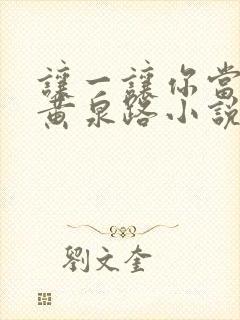 讓一讓你當
黃泉路小說
劉文奎